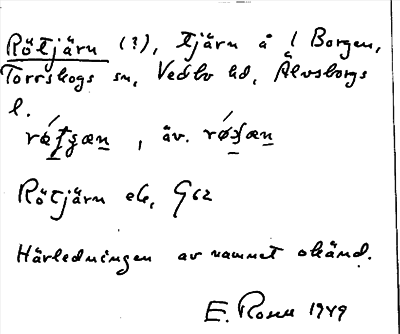 Rötjärn (?), tjärn å l Borgen,
Torrskogs sn, Vedbo hd, Älvsborgs
l.
, äv.
Rötjärn ek, G62
Härledningen av namnet okänd.
E. Rosell 1949